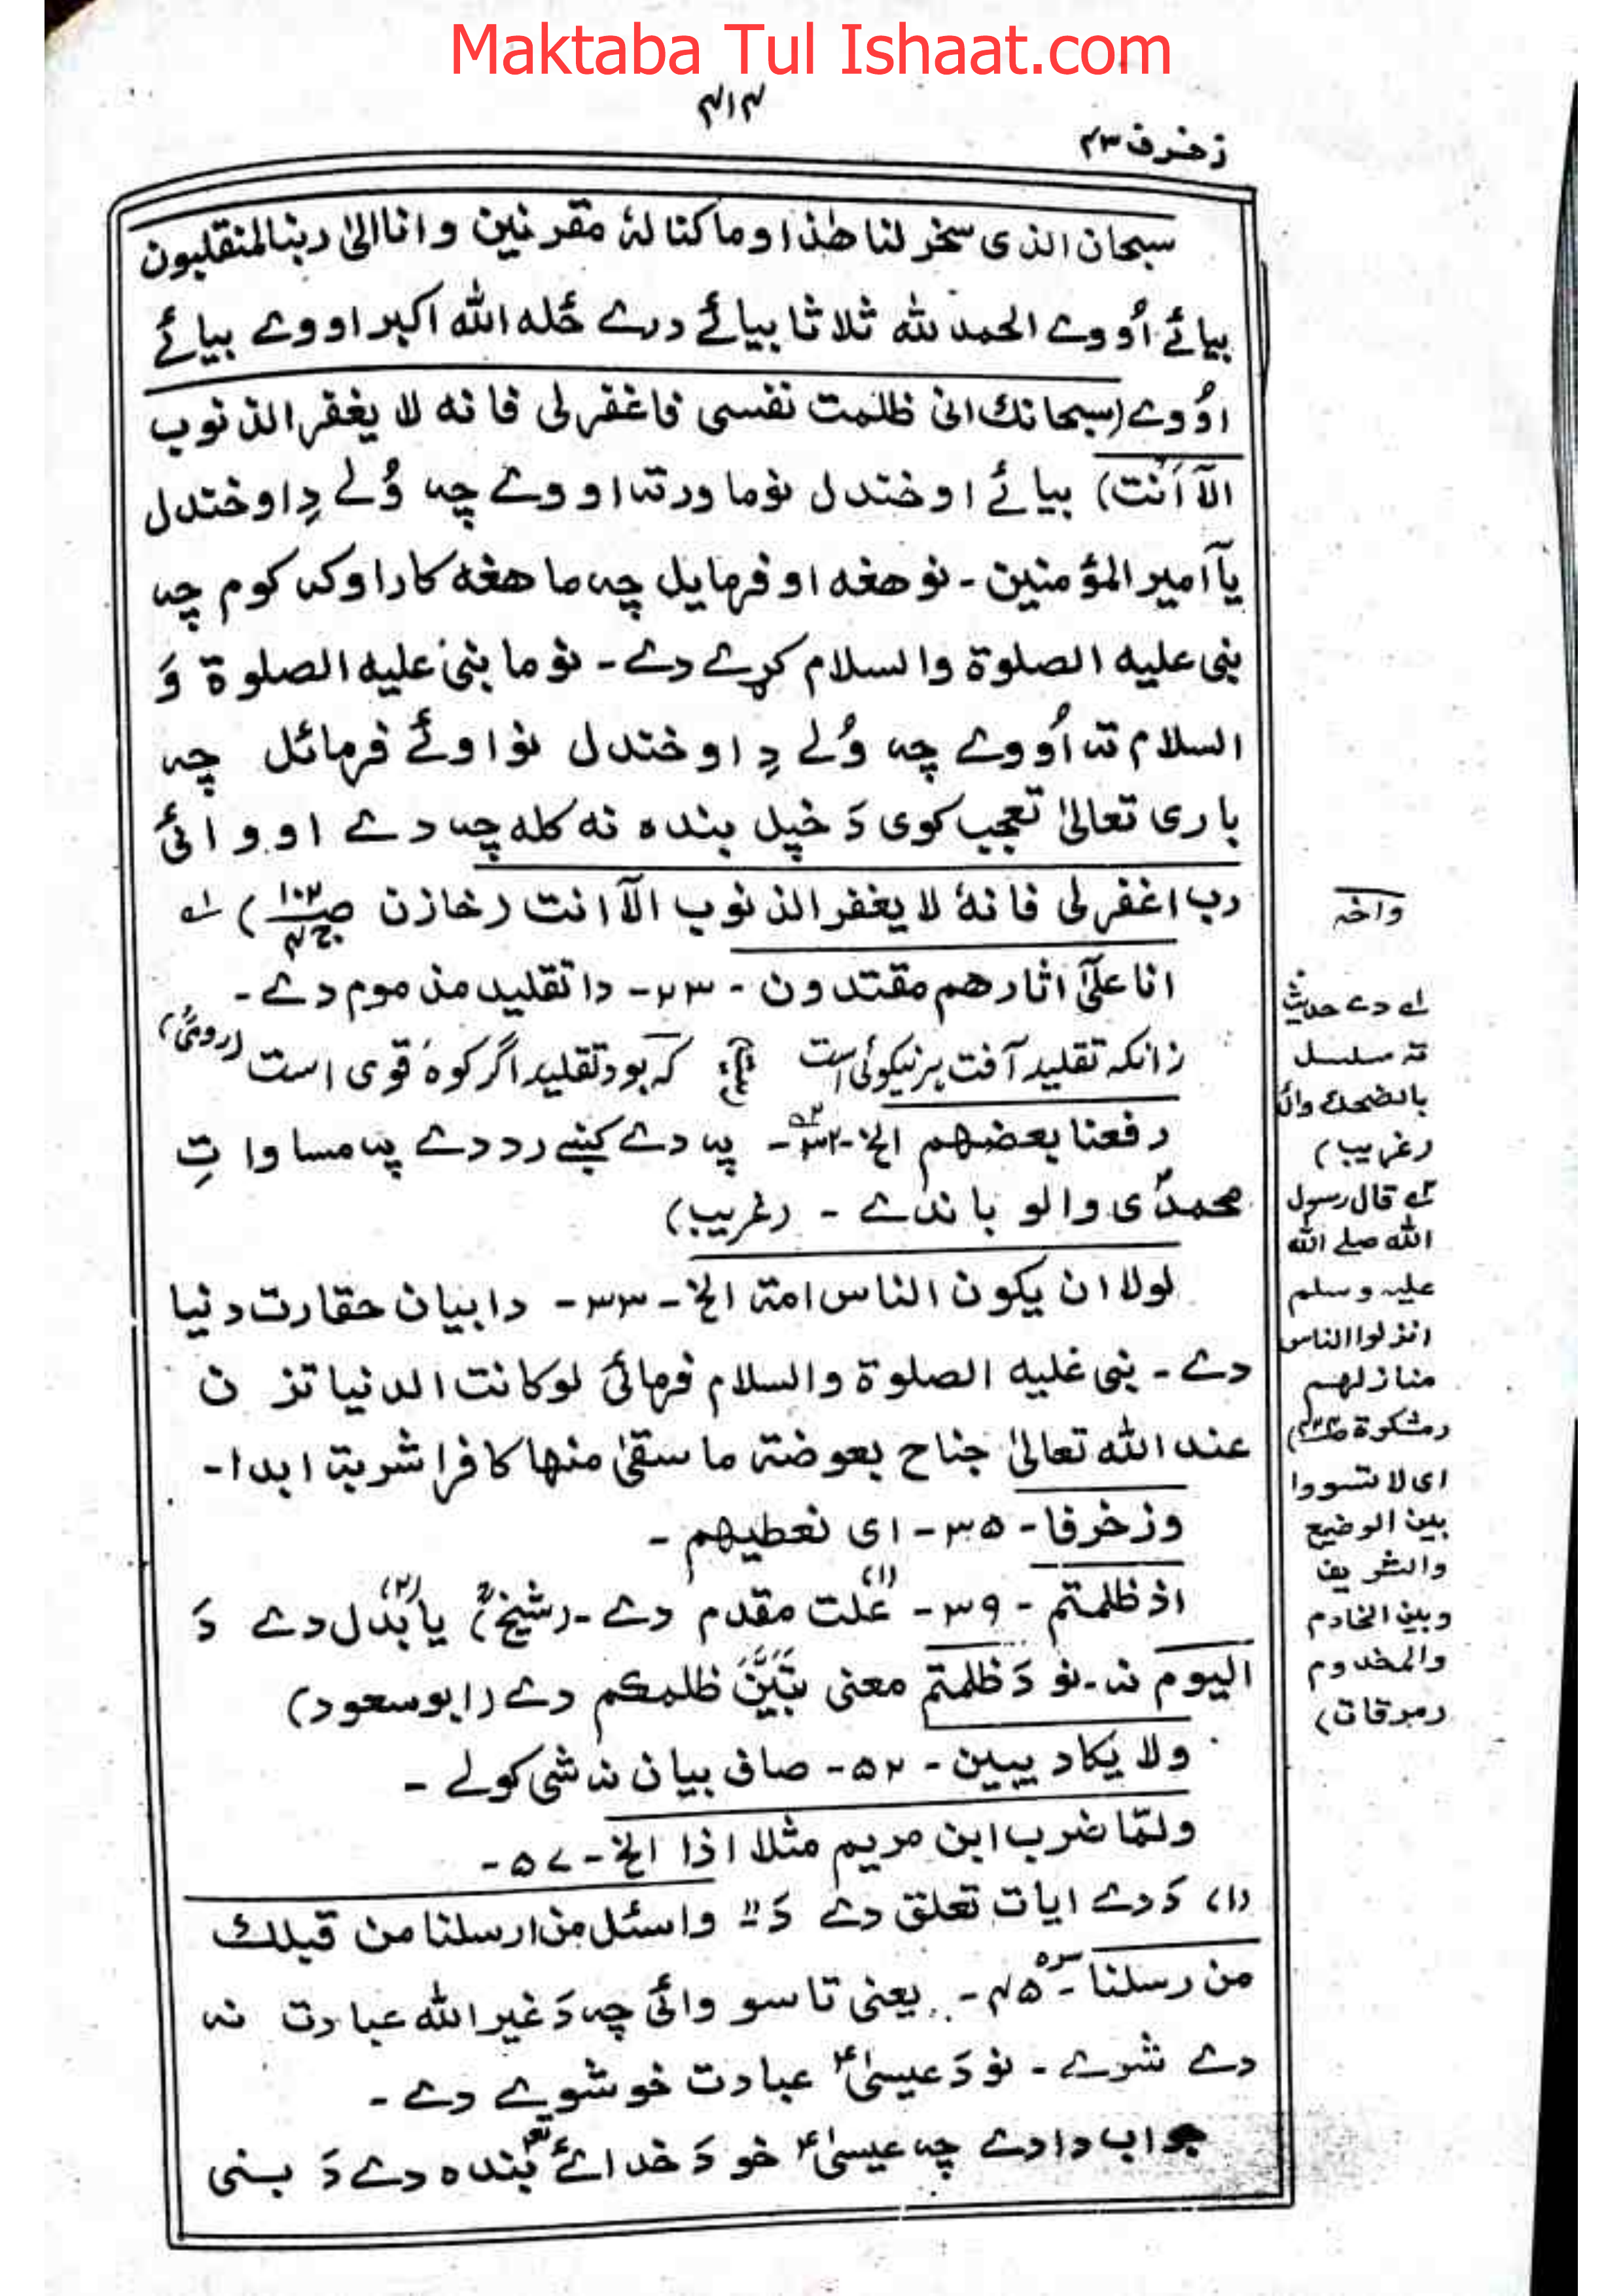 Maktaba Tul Ishaat.com
۴۱۴
زخرف ۴۳
سبحان الذی سخر لنا هٰذا وما کنا لهٗ مقرنین وانا الیٰ ربنا لمنقلبون
بیائے اُووے الحمد للّٰه ثلاثا بیائے درے ځله اللّٰه اکبر اووے بیائے
اوُوے (سبحانك انی ظلمت نفسی فاغفرلی فانه لا یغفر الذنوب
الآ اَنت) بیائے اوخندل نوما ورته اووے چه وُلے دِ اوخندل
یآ امیر المؤمنین ـ نو هغه اوفرمایل چه ما هغه کار اوکہ کوم چه
نبی علیه الصلوة والسلام کړے دے ـ نو ما نبی علیه الصلوة وَ
السلام ته اُووے چه وُلے دِ اوخندل نو اوئے فرمائل چه
باری تعالیٰ تعجب کوی دَ خپل بنده نه کله چه دے اووائی
رب اغفرلی فانهٗ لا یغفر الذنوب الآ انت (خازن صـ۱۰۲ ج۴) لہ
انا علیٰٓ اٰثارهم مقتدون ـ ۲۳ ـ دا تقلید مذموم دے ـ
زانکه تقلید آفت ہر نیکوئی است کہ بود تقلید اگر کوہ قوی است (رومیؒ)
رفعنا بعضهم الخ ـ ۳۲ ـ په دے کښے رد دے په مساواتِ
محمدؐی والو باندے ـ (غریب)
لولا ان یکون الناس امة الخ ـ ۳۳ ـ دا بیان حقارت دنیا
دے ـ نبی علیه الصلوة والسلام فرمائی لو کانت الدنیا تزن
عند اللّٰه تعالیٰ جناح بعوضة ما سقیٰ منها کافرا شربة ابدا ـ
وزخرفا ـ ۳۵ ـ ای نعطیهم ـ
اذ ظلمتم ـ ۳۹ ـ (۱) علت مقدم دے ـ (شیخؒ) یا (۲) بدل دے دَ
الیوم نه ـ نو دَ ظلمتم معنی تَبَیَّنَ ظلمکم دے (ابو سعود)
ولا یکاد یبین ـ ۵۲ ـ صاف بیان نه شی کولے ـ
ولمّا ضرب ابن مریم مثلا اذا الخ ـ ۵۷ ـ
(۱) دَ دے ایات تعلق دے دَ " واسئل من ارسلنا من قبلك
من رسلنا ـ ۴۵ ـ یعنی تاسو وائی چه دَ غیر اللّٰه عبادت نه
دے شوے ـ نو دَ عیسیٰؑ عبادت خو شوے دے ـ
جواب دا دے چه عیسیٰؑ خو دَ خدائے بنده دے دَ بنی
واخہ
لہ دے حدیث
ته سلسل
بالضحك وائی
(غریب)
۲ہ قال رسول
اللّٰه صلے اللّٰه
علیه وسلم
انزلوا الناس
منازلهم
(مشکوة)
ای لا تسووا
بین الوضیع
والشریف
وبین الخادم
والمخدوم
(مرقات)